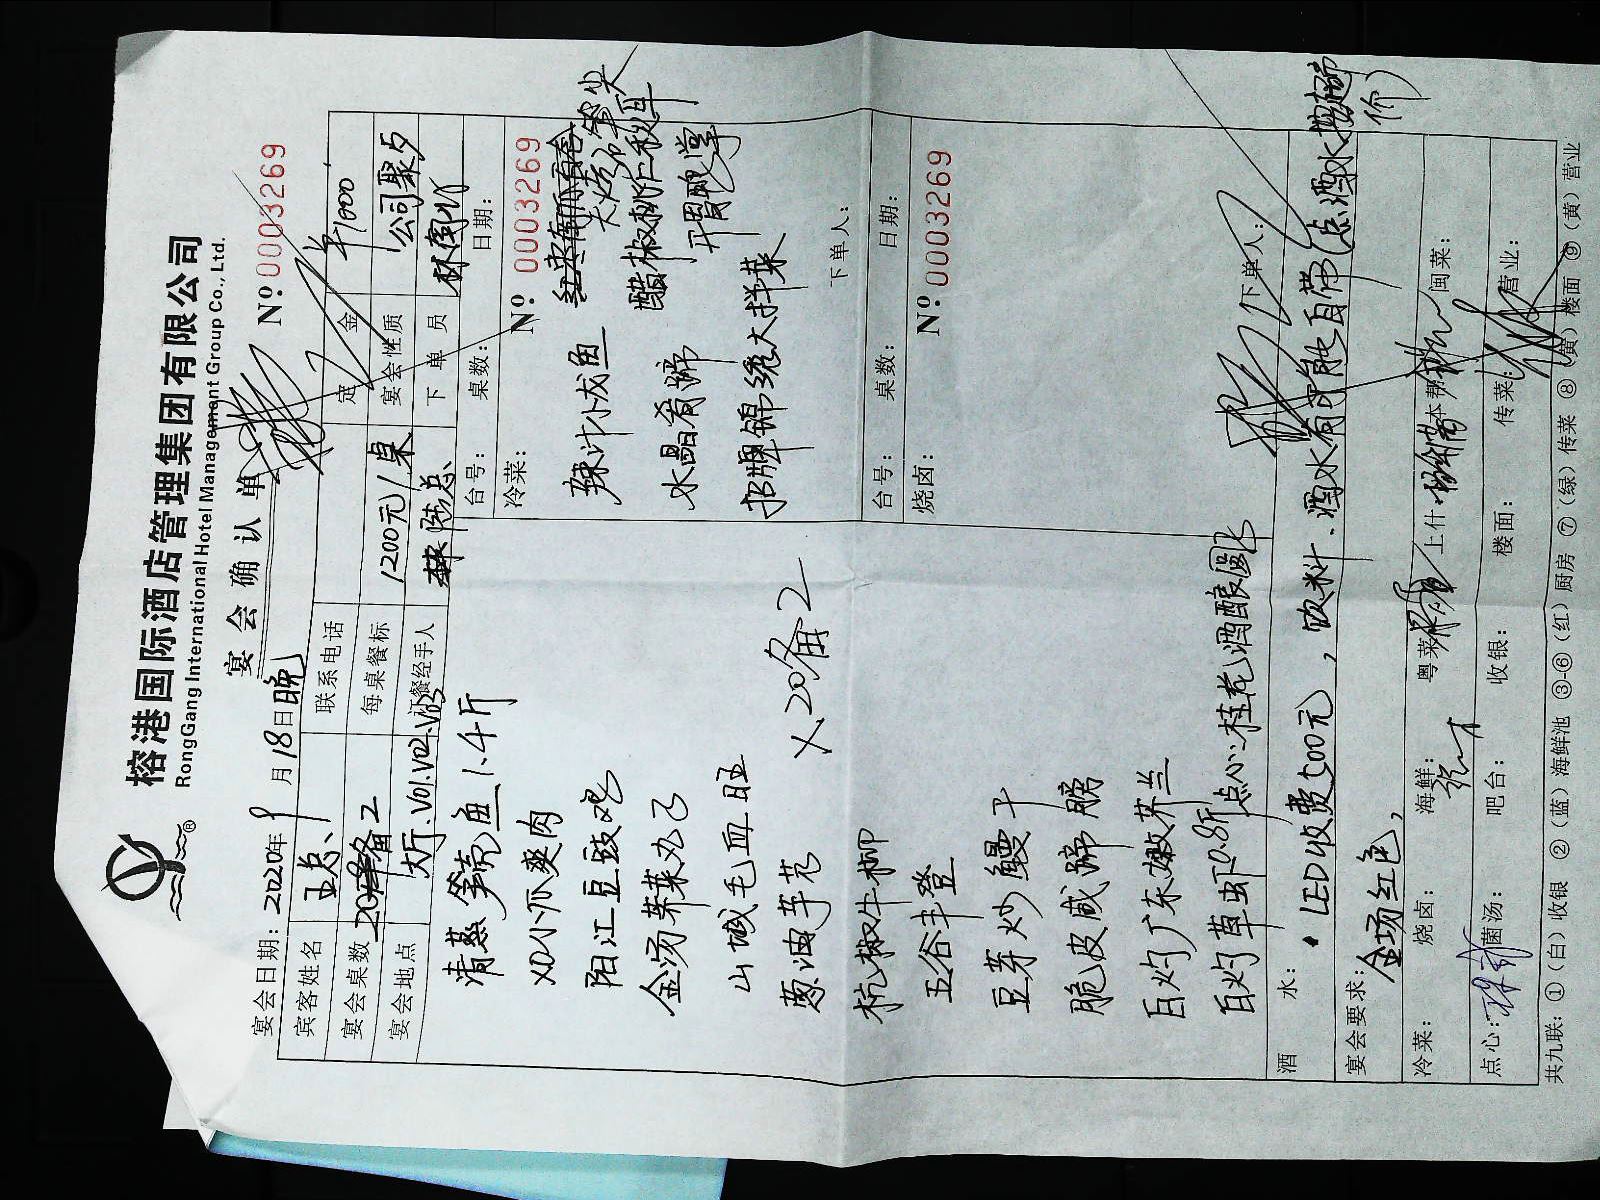 榕港国际酒店管理集团有限公司
RongGang International Hotel Management Group Co., Ltd.
宴会确认单
宴会日期：2020年9月18日晚 Nº 0003269
宾客姓名 王总 联系电话 定金 ¥1000
宴会桌数 20备2 每桌餐标 1200元/桌 宴会性质 公司聚夕
宴会地点 大厅.V01.V02.V03 订餐经手人 陈总 下单员
清蒸笋壳鱼1.4斤
XO小瓜爽肉
阳江豆豉鸡
金汤荠菜丸子
山城毛血旺
葱油芋艿
杭椒牛柳
五谷丰登
豆芽炒鳗干
脆皮咸蹄膀
白灼广东嫩芥兰
白灼草虾0.8斤 点心:桂花酒酿圆
X20备2
台号： 桌数： 日期：
冷菜： Nº 0003269
辣汁小龙鱼
水晶肴蹄 醋椒桃仁秋耳
招牌锦绣大拼菜
下单人：
台号： 桌数： 日期：
烧卤： Nº 0003269
下单人：
酒水： LED收费500元，饮料.酒水有可能自带(点酒水
宴会要求： 全场红色，
冷菜： 烧卤： 海鲜： 粤菜： 上什： 本帮： 闽菜：
点心： 菌汤： 吧台： 收银： 楼面： 传菜： 营业：
共九联：①（白）收银 ②（蓝）海鲜池 ③-⑥（红）厨房 ⑦（绿）传菜 ⑧（黄）楼面 ⑨（黄）营业